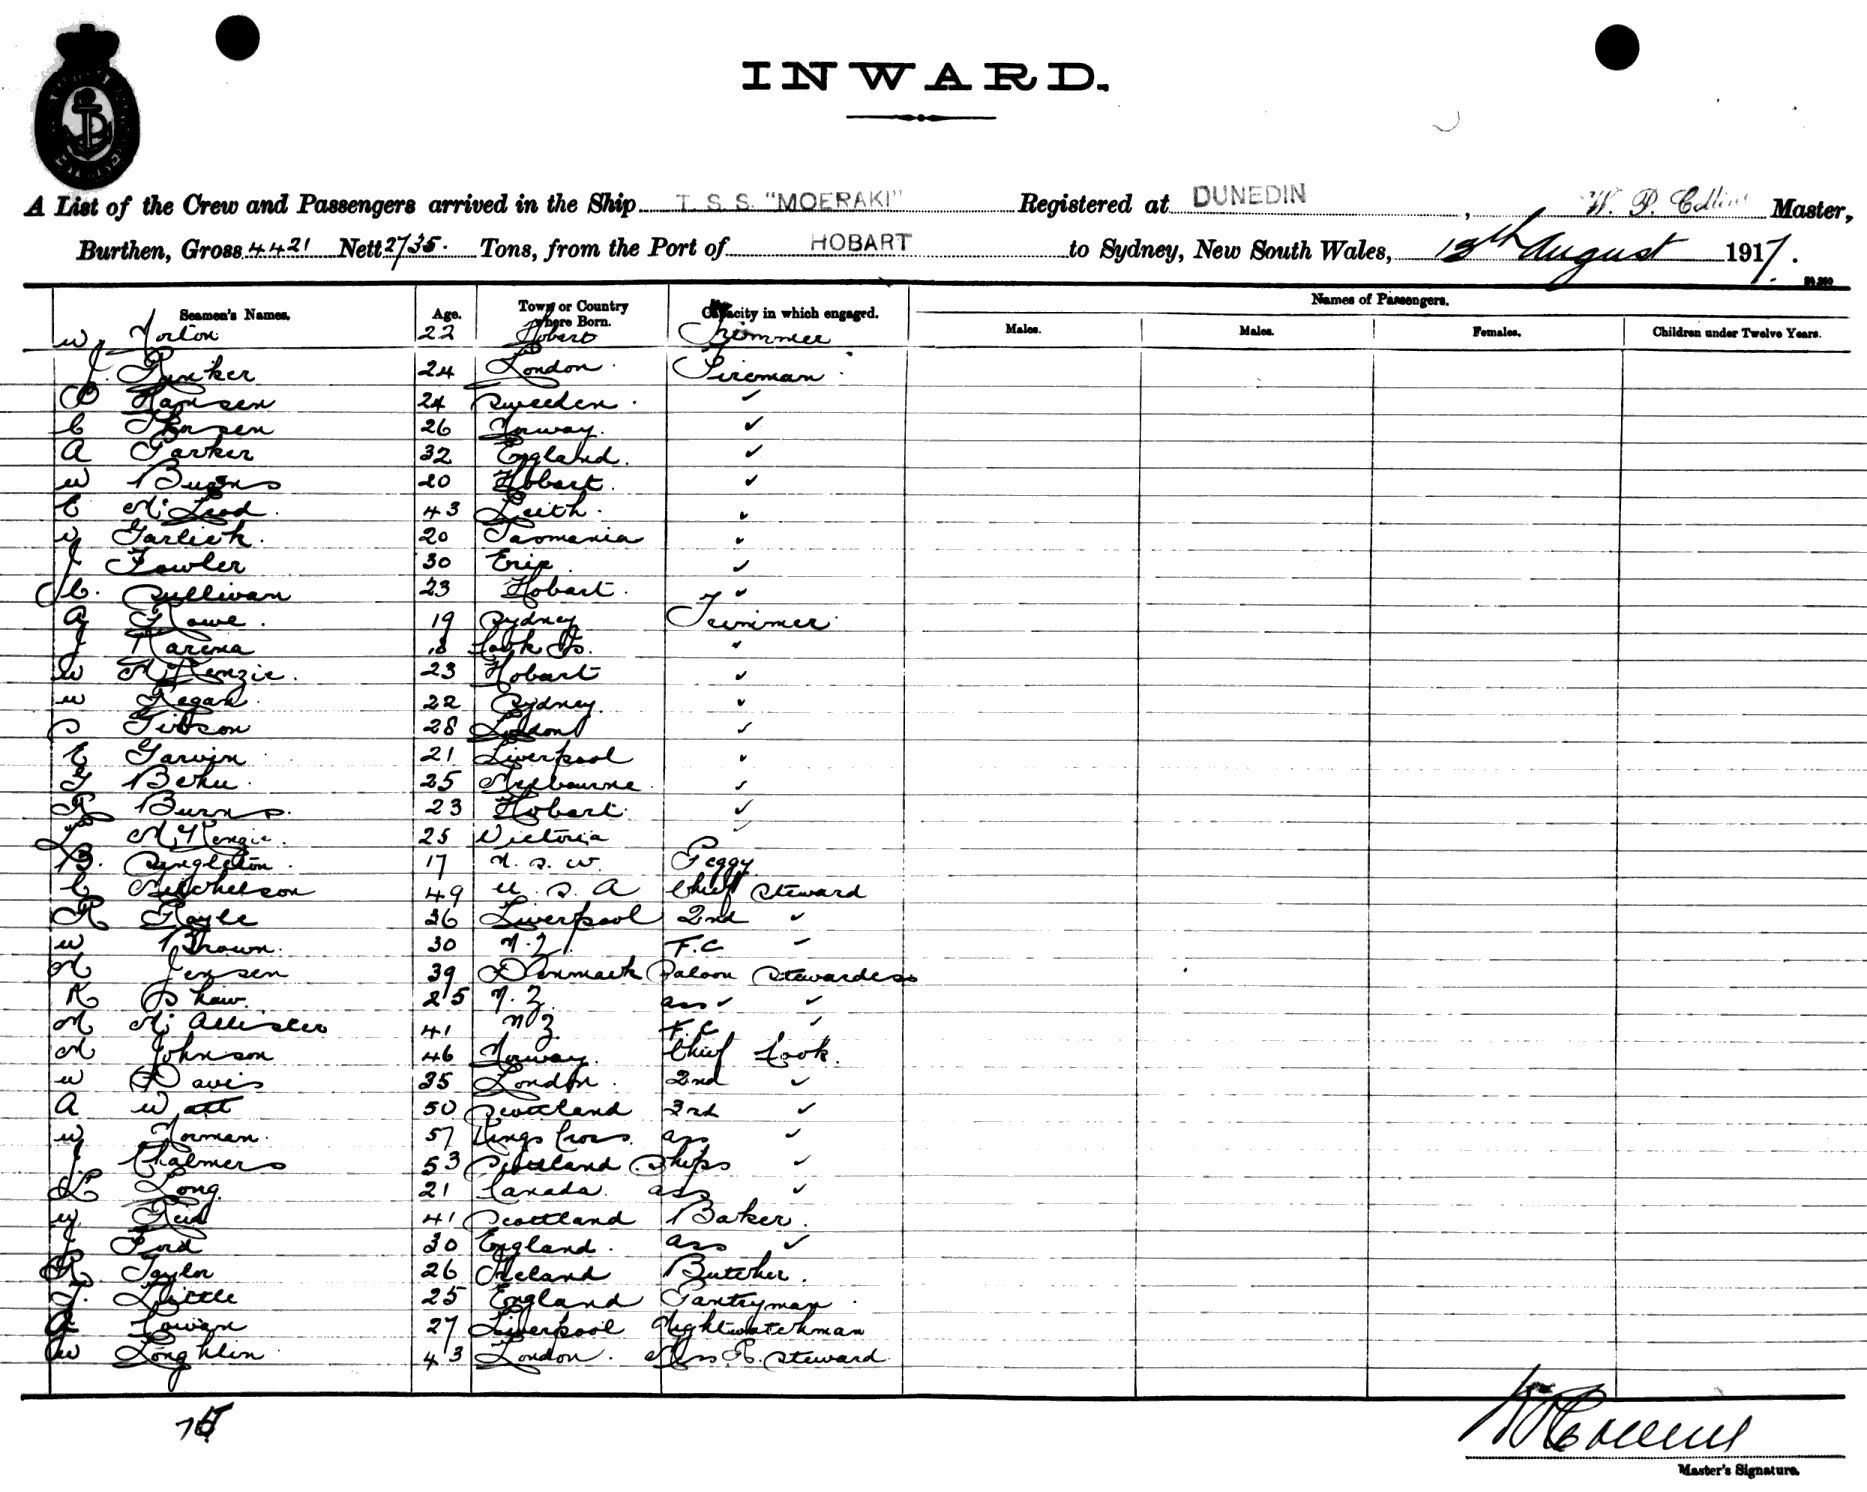 INWARD.
A List of the Crew and Passengers arrived in the Ship T.S.S. "MOERAKI" Registered at DUNEDIN, W. P. Collins Master,
Burthen, Gross 4421 Nett 2735. Tons, from the Port of HOBART to Sydney, New South Wales, 13th August 1917.
Seamen's Names. Age. Town or Country where Born. Capacity in which engaged. Names of Passengers.
Males. Males. Females. Children under Twelve Years.
W Norton 22 Hobart Trimmer
J. 24 London. Fireman
O Hansen 24 Sweeden. ✓
C Thorsen 26 Norway. ✓
A Parker 32 England. ✓
W Burns 20 Hobart. ✓
E McLeod. 43 Leith. ✓
W Garlick. 20 Tasmania ✓
J Fowler 30 Erie ✓
C. Sullivan 23 Hobart. ✓
A Rowe. 19 Sydney Trimmer
J Karena 18 Cook Is. ✓
W McKenzie. 23 Hobart ✓
W Regan. 22 Sydney. ✓
S Gibson 28 London ✓
E Garvin 21 Liverpool ✓
G 25 Melbourne. ✓
R Burns. 23 Hobart. ✓
L McKenzie. 25 Victoria ✓
B. Singleton. 17 N. S. W. Peggy
C Mitchelson 49 U. S. A Chief Steward
R Royle 36 Liverpool 2nd ✓
W Brown. 30 N. Z. F.C ✓
M Jensen 39 Denmark Saloon Stewardess
K Shaw. 25 N. Z. ass ✓ ✓
M McAllister 41 N Z F.C ✓
M Johnson 46 Norway. Chief Cook.
W Davis 35 London. 2nd ✓
A Watt 50 Scotland 3rd ✓
W Norman. 57 Kings Cross. ass ✓
J. Chalmers 53 Scotland Ships ✓
L Long. 21 Canada. ass ✓
W. Reid 41 Scotland Baker.
J Ford 30 England. ass ✓
R. Taylor 26 Ireland Butcher.
T. Little 25 England Pantryman.
A Cowan 27 Liverpool Nightwatchman
W Loughlin. 43 London. Mess R. Steward.
W P Collins
Master's Signature.